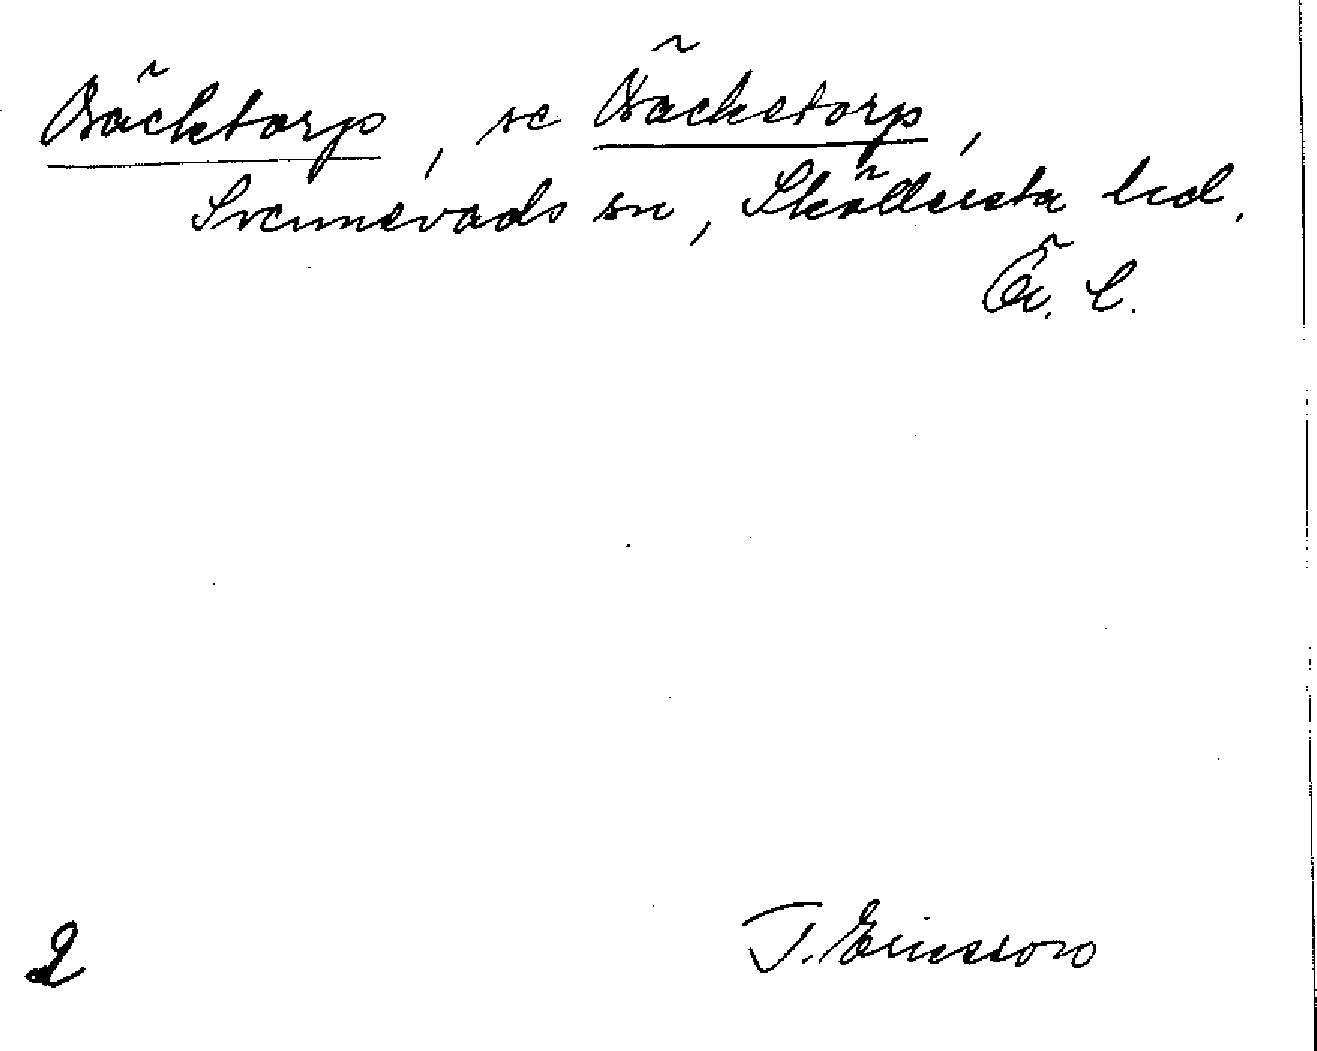 Bäcktorp, se Bäckstorp,
Svennevads sn, Sköllersta hd,
Ör. l.
2 T. Ericsson